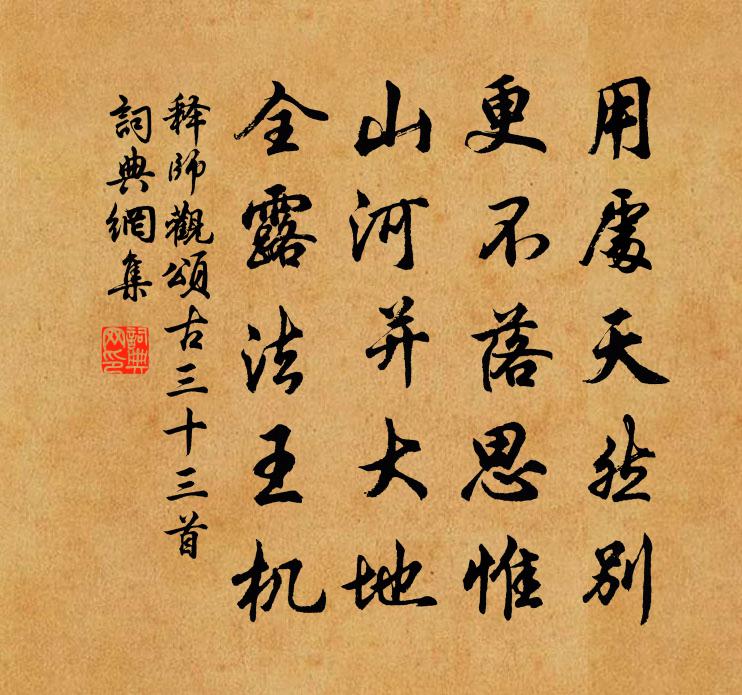 用處天然別
更不落思惟
山河并大地
全露法王机
释師觀頌古三十三首
詞典網集
詞典网印